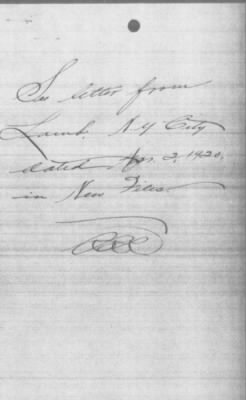 See letter from
Lamb, N.Y City
dated 2, 1920,
in New Files